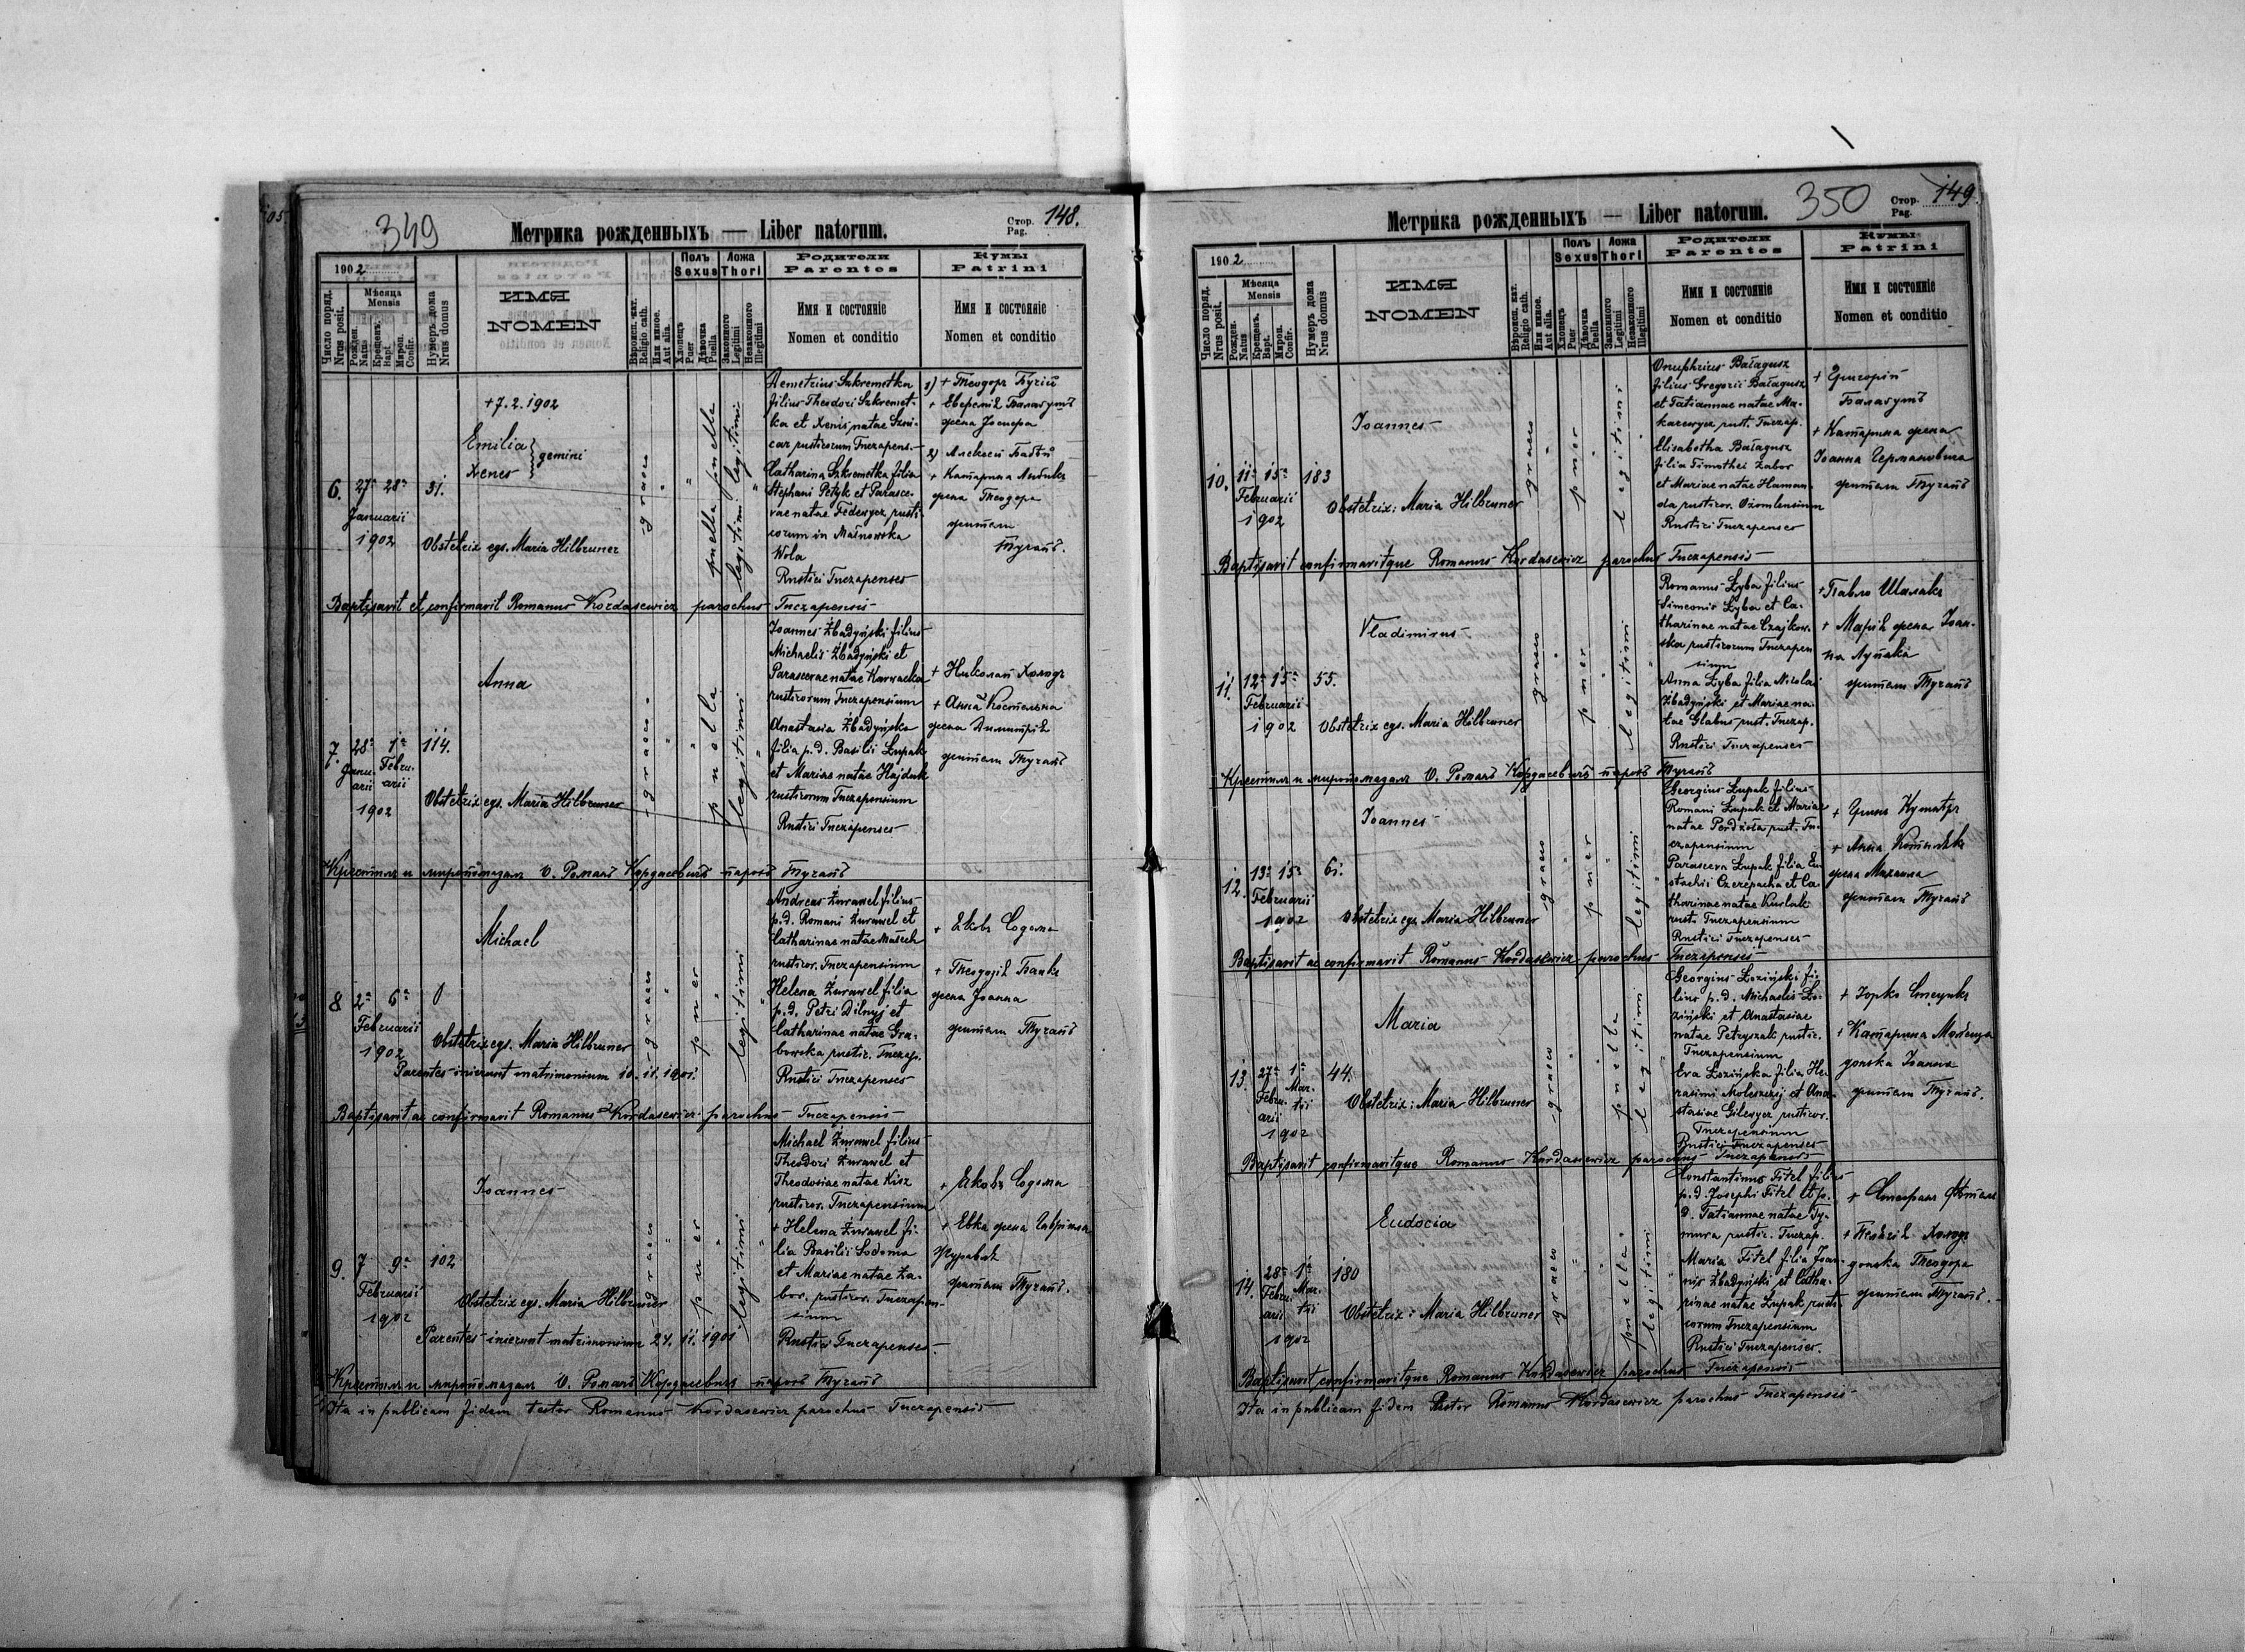 349
Метрика рожденныхъ — Liber natorum.
Стор. 148.
Pag.
1902
Число поряд.
Nrus posit.
Мѣсяца
Mensis
Рожден.
Natus
Крещенъ.
Bapt.
Мѵроп.
Confir.
Нумеръ дома
Nrus domus
ИМЯ
NOMEN
Religio cath.
Или иное.
Aut alia.
Полъ
Sexus
Хлопецъ
Puer
Дѣвочка
Puella
Ложа
Thori
Законного
Legitimi
Незаконного
Illegitimi
Родители
Parentes
Имя и состоянiе
Nomen et conditio
Кумы
Patrini
Имя и состоянiе
Nomen et conditio
6.
27a 28a
Januarii
1902
31.
+7.2.1902
Emilia
Xenes
gemini
Obstetrix egs. Maria Hilbruner
graeco
puella puella
legitimi legitimi
Demetrius Szkremetka
filius Theodori Szkremet-
ka et Xenis natae
rusticorum Tuczapens.
Catharina Szkremetka filia
Stephani Petyk et Parasce-
vae natae Fedewycz rusti-
corum in Malnowska
Wola
Rustici Tuczapenses
1) + Теодоръ
+
жена Іосифа
2) Алексей
+ Катарина
жена Теодора
жители
Тучапъ.
Baptisavit et confirmavit Romanus Kordasewicz parochus Tuczapensis
7.
28a 1a
Janu- Febru-
arii arii
1902
114.
Anna
Obstetrix egs. Maria Hilbruner
graeco
puella
legitimi
Joannes Żbadyński filius
Michaelis Żbadyński et
Parascevae natae Karwacka
rusticorum Tuczapensium
Anastasia Żbadyńska
filia p. d. Basilii Łupak
et Mariae natae Hajduk
rusticorum Tuczapensium
Rustici Tuczapenses
+ Николай Холодъ
+ Анна Костельна
жена Димитрія
жители Тучапъ
Крестилъ и миропомазалъ О. Романъ Кордасевичъ парохъ Тучапъ
8
2a 6a
Februarii
1902
Michael
Obstetrix egs. Maria Hilbruner
Parentes inierunt matrimonium 10. 11. 1901.
graeco
puer
legitimi
Andreas Żurawel filius
p. d. Romani Żurawel et
Catharinae natae Małech
rusticor. Tuczapensium
Helena Żurawel filia
p. d. Petri Dilnyj et
Catharinae natae Gra-
bowska rustic. Tuczap.
Rustici Tuczapenses
+ Яковъ Содома
+ Теодозія Банкъ
жена Іоанна
жители Тучапъ
Baptisavit ac confirmavit Romanus Kordasewicz parochus Tuczapensis
9.
7 9a
Februarii
1902
102
Joannes
Obstetrix egs. Maria Hilbruner
Parentes inierunt matrimonium 24. 11. 1901
graeco
puer
legitimi
Michael Żurawel filius
Theodori Żurawel et
Theodosiae natae Kisz
rusticor. Tuczapensium
+ Helena Żurawel fi-
lia Basilii Sodoma
et Mariae natae Ża-
bor. rusticor. Tuczapen-
sium
Rustici Tuczapenses.
+ Яковъ Содома
+ Евка жена Гавриила
Журавель
жители Тучапъ.
Крестилъ и миропомазалъ О. Романъ Кордасевичъ парохъ Тучапъ
Ita in publicam fidem testor Romanus Kordasewicz parochus Tuczapensis
350
Метрика рожденныхъ — Liber natorum.
Стор. 149.
Pag.
1902
Число поряд.
Nrus posit.
Мѣсяца
Mensis
Рожден.
Natus
Крещенъ.
Bapt.
Мѵроп.
Confir.
Нумеръ дома
Nrus domus
ИМЯ
NOMEN
Religio cath.
Или иное.
Aut alia.
Полъ
Sexus
Хлопецъ
Puer
Дѣвочка
Puella
Ложа
Thori
Законного
Legitimi
Незаконного
Illegitimi
Родители
Parentes
Имя и состоянiе
Nomen et conditio
Кумы
Patrini
Имя и состоянiе
Nomen et conditio
10.
11a 15a
Februarii
1902
183
Joannes
Obstetrix: Maria Hilbruner
graeco
puer
legitimi
Onuphrius Bałagusz
filius Gregorii Bałagusz
et Tatiannae natae Ma-
karewycz rust. Tuczap.
Elisabetha Bałagusz
filia Timothei Zabor
et Mariae natae Haman-
da rusticor. Ożomlensium
Rustici Tuczapenses
+ Григорій
Балагушъ
+ Катарина жена
Іоанна Германовича
жители Тучапъ
Baptisavit confirmavitque Romanus Kordasewicz parochus Tuczapensis
11.
12a 15a
Februarii
1902
55.
Vladimirus
Obstetrix egs. Maria Hilbruner
graeco
puer
legitimi
Romanus Łyba filius
Simeonis Łyba et Ca-
tharinae natae Czajkow-
ska rusticorum Tuczapen
sium
Anna Łyba filia Nicolai
Żbadyński et Mariae na-
tae Glabus rust. Tuczap.
Rustici Tuczapenses
+ Павло Шалакъ
+ Марія жена Іоан-
на Лупака
жители Тучапъ
Крестилъ и миропомазалъ О. Романъ Кордасевичъ парохъ Тучапъ
12.
13a 15a
Februarii
1902
61.
Joannes
Obstetrix egs. Maria Hilbruner
graeco
puer
legitimi
Georgius Łupak filius
Romani Łupak et Mariae
natae Perdziła rust. Tu-
czapensium
Parasceva Łupak filia Eu-
stachii Czerepacha et Ca-
tharinae natae Kurlak
rust. Tuczapensium
Rustici Tuczapenses
+
+ Анна
жена Михаила
жители Тучапъ
Baptisavit ac confirmavit Romanus Kordasewicz parochus Tuczapensis
13.
27a 1a
Febru- Mar-
arii tii
1902
44.
Maria
Obstetrix: Maria Hilbruner
graeco
puella
legitimi
Georgius Łoziński fi-
lius p. d. Michaelis Ło-
ziński et Anastasiae
natae Petryszak rustic.
Tuczapensium
Eva Łozińska filia He-
rasimi Moleszczij et Ana-
stasiae Gilewycz rusticor.
Tuczapensium
Rustici Tuczapenses
+ Юрко Стецикъ
+ Катарина
донька Іоанна
жители Тучапъ.
Baptisavit confirmavitque Romanus Kordasewicz parochus Tuczapensis
14.
28a 1a
Febru- Mar-
arii tii
1902
180
Eudocia
Obstetrix: Maria Hilbruner
graeco
puella
legitimi
Constantinus Fitel filius
p. d. Josephi Fitel et p.
d. Tatiannae natae Ty-
mura rustic. Tuczap.
Maria Fitel filia Joan-
nis Żbadyński et Catha-
rinae natae Łupak rusti-
corum Tuczapensium
Rustici Tuczapenses.
+ Стефанъ Фітель
+ Холодъ
донька Теодора
жители Тучапъ.
Baptisavit confirmavitque Romanus Kordasewicz parochus Tuczapensis
Ita in publicam fidem testor Romanus Kordasewicz parochus Tuczapensis